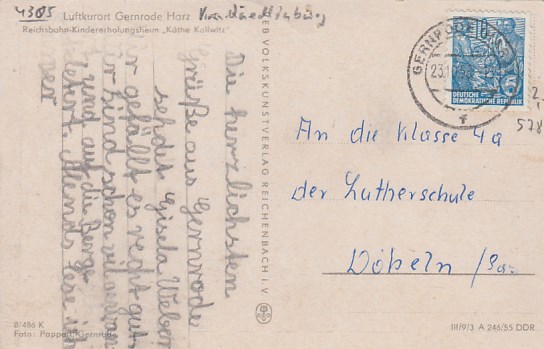 4305
Luftkurort Gernrode Harz Krs. Quedlinburg
Reichsbahn-Kindererholungsheim „Käthe Kollwitz"
Die herzlichsten
Grüße aus Gernrode
sendet Gisela Weber
gefällt es recht gut
sind schon viel
und auf die Berge
Abends lese ich
vor
VEB VOLKSKUNSTVERLAG REICHENBACH I. V.
GERNRODE
23.1
DEUTSCHE
DEMOKRATISCHE REPUBLIK
10
5
f
578
An die Klasse 4a
der Lutherschule
Döbeln / Sa.
8/486 K
Foto: Poppert, Gernrode
III/9/3 A 246/55 DDR